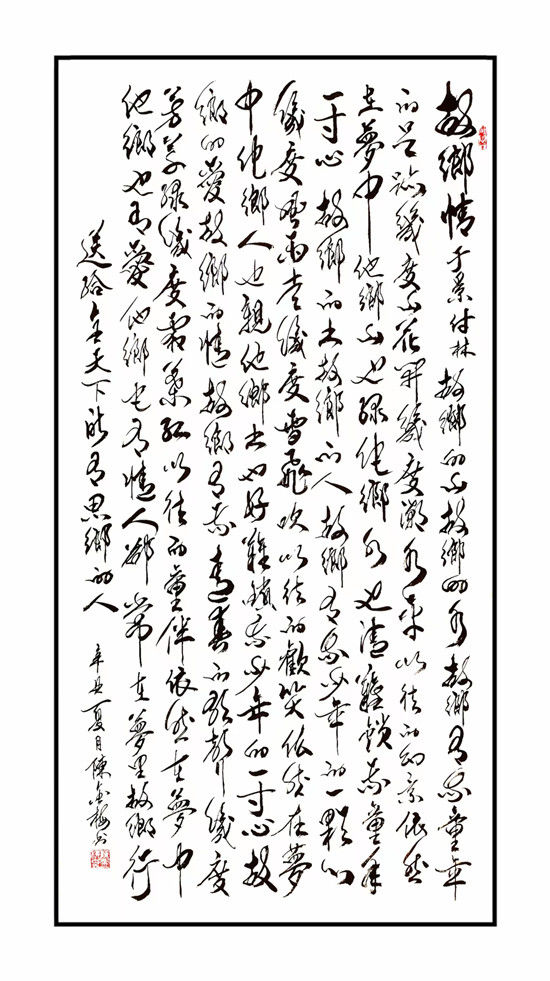 故鄉情 于景付林 故鄉的山故鄉的水故鄉有我童年
的足跡幾度山花開幾度潮水平以往的幻景依然
在夢中他鄉山也綠他鄉水也清難鎖我童年
一寸心故鄉的土故鄉的人故鄉有我少年的一顆心
幾度風雨幾度雪飛吹以往的歡笑依然在夢
中他鄉人也親他鄉土也好難鎖我少年的一寸心故
鄉的愛故鄉的情故鄉有我青春的歌聲幾度
芳草綠幾度霜葉紅以往的童伴依然在夢中
他鄉也有愛他鄉也有情人卻常在夢里故鄉行
送給全天下所有思鄉的人 辛丑夏月陳金梅書